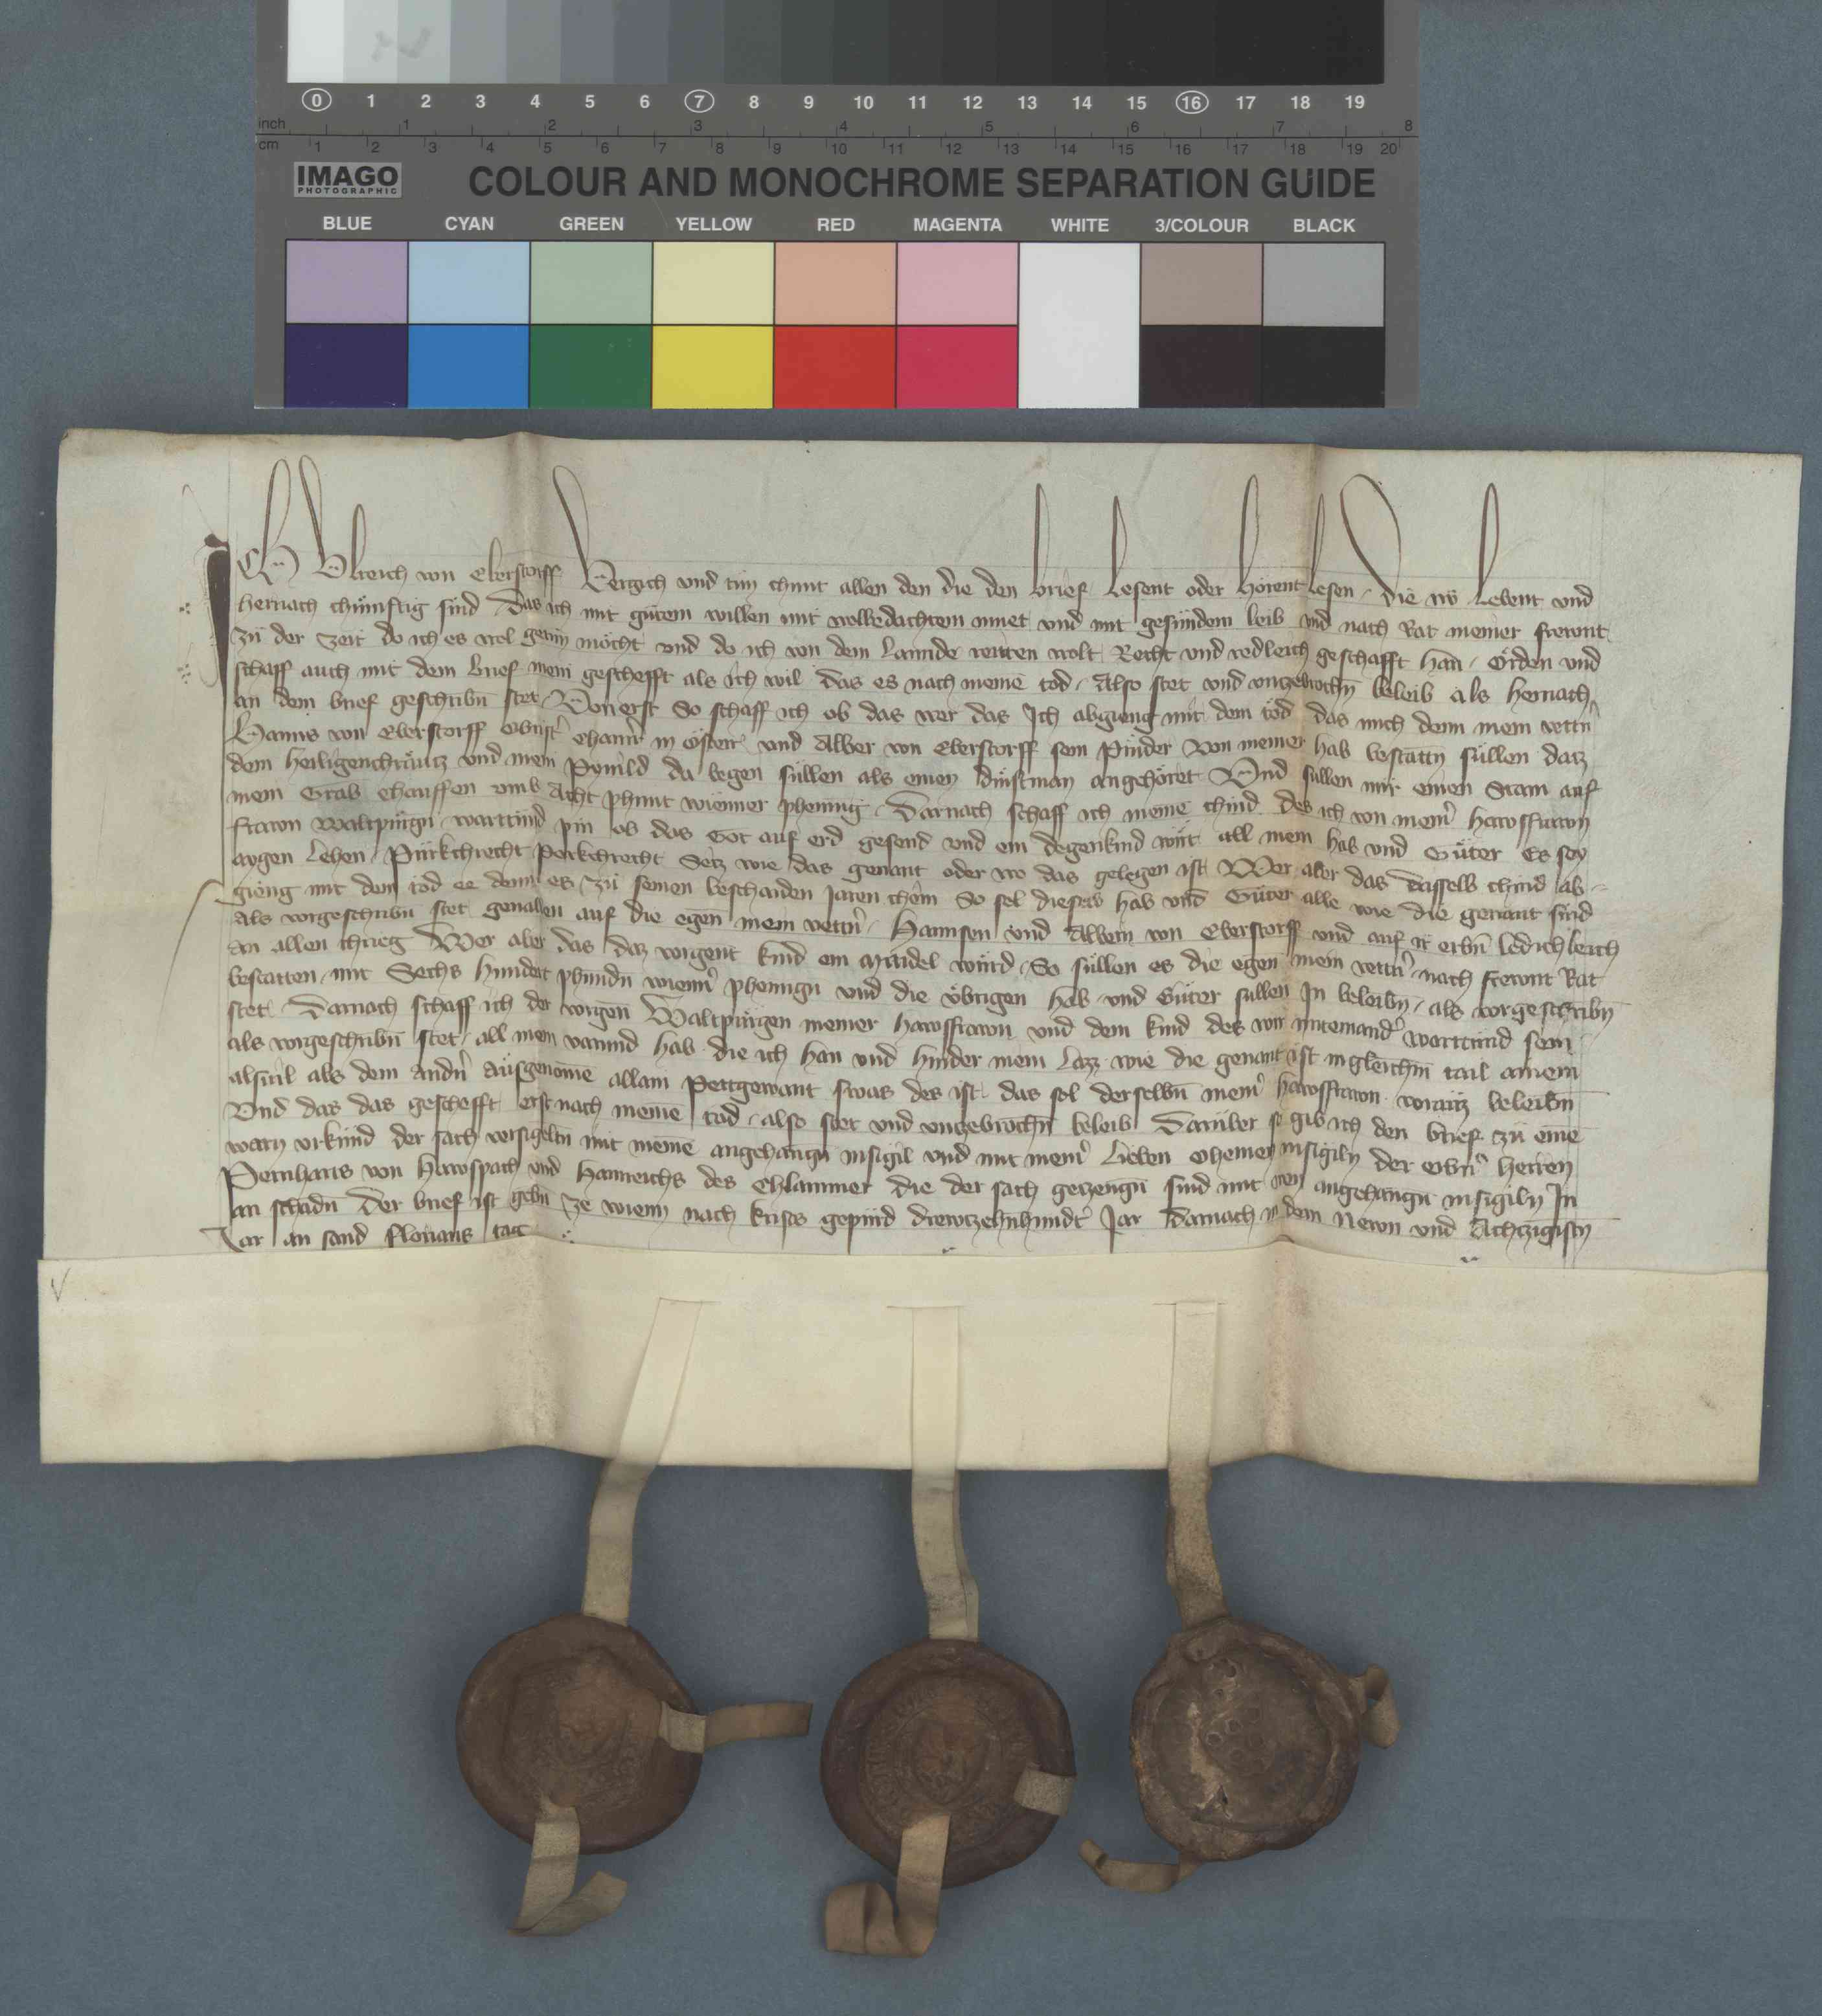 0 1 2 3 4 5 6 7 8 9 10 11 12 13 14 15 16 17 18 19
inch 1 2 3 4 5 6 7 8
cm 1 2 3 4 5 6 7 8 9 10 11 12 13 14 15 16 17 18 19 20
IMAGO
PHOTOGRAPHIC
COLOUR AND MONOCHROME SEPARATION GUIDE
BLUE CYAN GREEN YELLOW RED MAGENTA WHITE 3/COLOUR BLACK
Ich Vlreich von Eberstorff Vergich vnd tůn chunt allen den die den brief lesent oder hörent lesen die nv lebent vnd
hernach chůnftig sind Das ich mit gůtem willen mit wolbedachtem můet vnd mit gesundem leib vnd nach Rat meiner frewnt
zů der zeit do ich es wol getůn möcht vnd do ich von dem Lannde reitten wolt Recht vnd redleich geschafft han Orden vnd
schaff auch mit dem brief mein geschefft als ich wil das es nach meinē tod Also stet vnd vnczebrochn̄ beleib als hernach
an dem brief geschribn̄ stet Von erst So schaff ich ob das wer das Ich abgieng mit dem tod das mich denn mein vettn̄
Hanns von Eberstorff Obrist chamrer in Österr vnd Alber von Eberstorff sein Průder Von meiner hab bestattn̄ süllen datz
dem heiligenchräutz vnd mein da begen süllen als einen dinstman angehöret Vnd süllen mir einen Stain auf
mein Grab chauffen vmb Acht phunt wienner phening Darnach schaff ich meinē chind des ich von mein̄ hawsfrawn
frawn Waltpürgn̄ warttund pin ob das Got auf erd gesend vnd ein degenkind wirt all mein hab vnd Güter Es sey
aygen Lehen Pürkchrecht Perkchrecht Setz wie das genant oder wo das gelegen ist Wer aber das dasselb chind ab
gieng mit dem tod ee denn es zů seinen beschaiden Jaren chem So sol dieselb hab vnd Güter alle wie die genant sind
als vorgeschribn̄ stet geuallen auf die egen̄ mein vettn̄ Hannsen vnd Albern von Eberstorff vnd auf ir erbn̄ ledichleich
an allen chrieg Wer aber das daz vorgent kind ein Maidel würd So süllen es die egen̄ mein vettn̄ nach frewnt Rat
bestatten mit Sechs hundert phundn̄ wienn̄ phenngn̄ vnd die übrigen hab vnd Güter süllen In beleibn̄ als vorgeschribn̄
stet Darnach schaff ich der vorgen̄ Waltpürgen meiner hawsfrawn vnd dem kind des wir miteinand̄ warttund sein
als vorgeschribn̄ stet all mein varund hab die ich han vnd hinder mein lazz wie die genant ist in gleichn̄ tail ainem
alsuil als dem andn̄ ausgenomē allain Pettgewant swas des ist das sol derselbn̄ mein̄ hawsfrawn voraüz beleibn̄
Vnd das das geschefft erst nach meinē tod also stet vnd vnczebrochn̄ beleib Darüber so gib ich den brief zů einē
warn vrkund der sach versigeltn̄ mit meinē angehangn̄ insigil vnd mit mein̄ lieben Ohemen insigiln der erbn̄ herren
Pernharts von Hawspach vnd Hainreichs des Chlammer die der sach geczeugn̄ sind mit iren angehangn̄ insigiln In
an schadn̄ Der brief ist gebn̄ ze wienn nach krists gepürd drewtzehnhundt̄ Jar Darnach in dem Newn vnd Achtzigistn̄
Jar an sand Florians tag